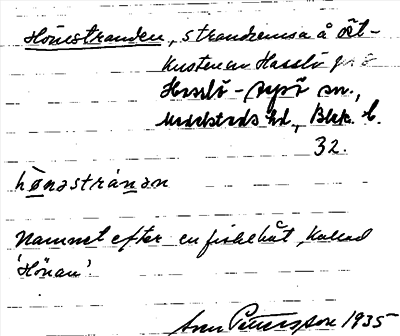 Hönestranden, strandremsa å öst-
kusten av Hasslö
Hasslö-Aspö sn.,
Medelsteds hd., Blek. l.
32.
hönastranan
Namnet efter en fiskebåt, kallad
'Hönan'.
Pettersson 1935